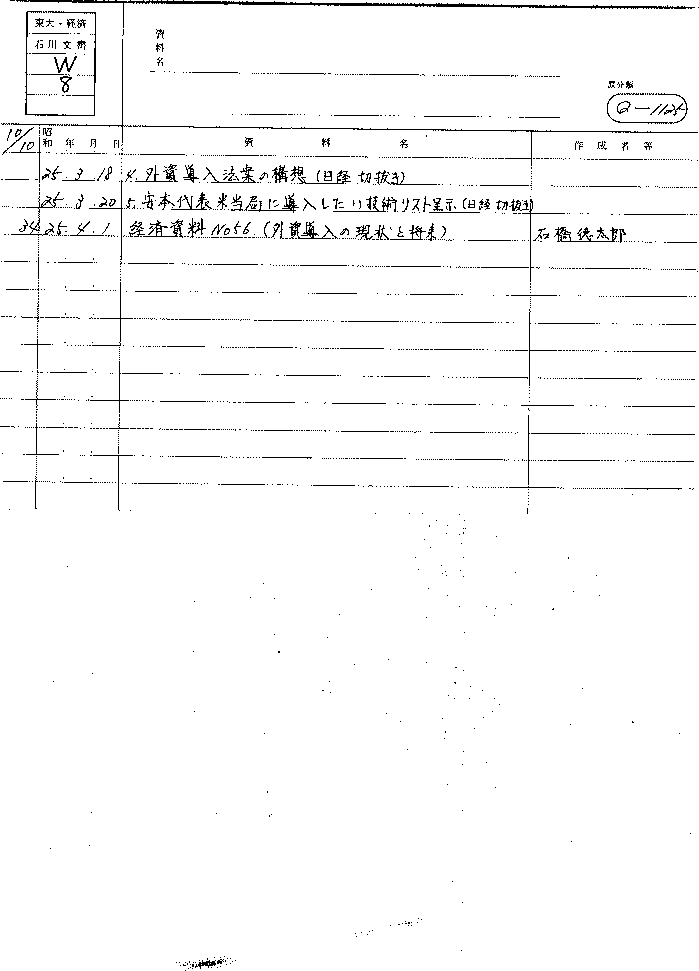 東大・経済
石川文書
W
8
資料名
原分類
Q-1125
10/10
昭和 年 月 日 資料名 作成名等
25. 3. 18 4. 外資導入法案の構想 (日経 切抜き)
25. 3. 20 5. 安本代表米当局に導入したい技術リスト呈示 (日経 切抜き)
34 25. 4. 1 経済資料 No56 (外資導入の現状と将来) 石橋徳太郎